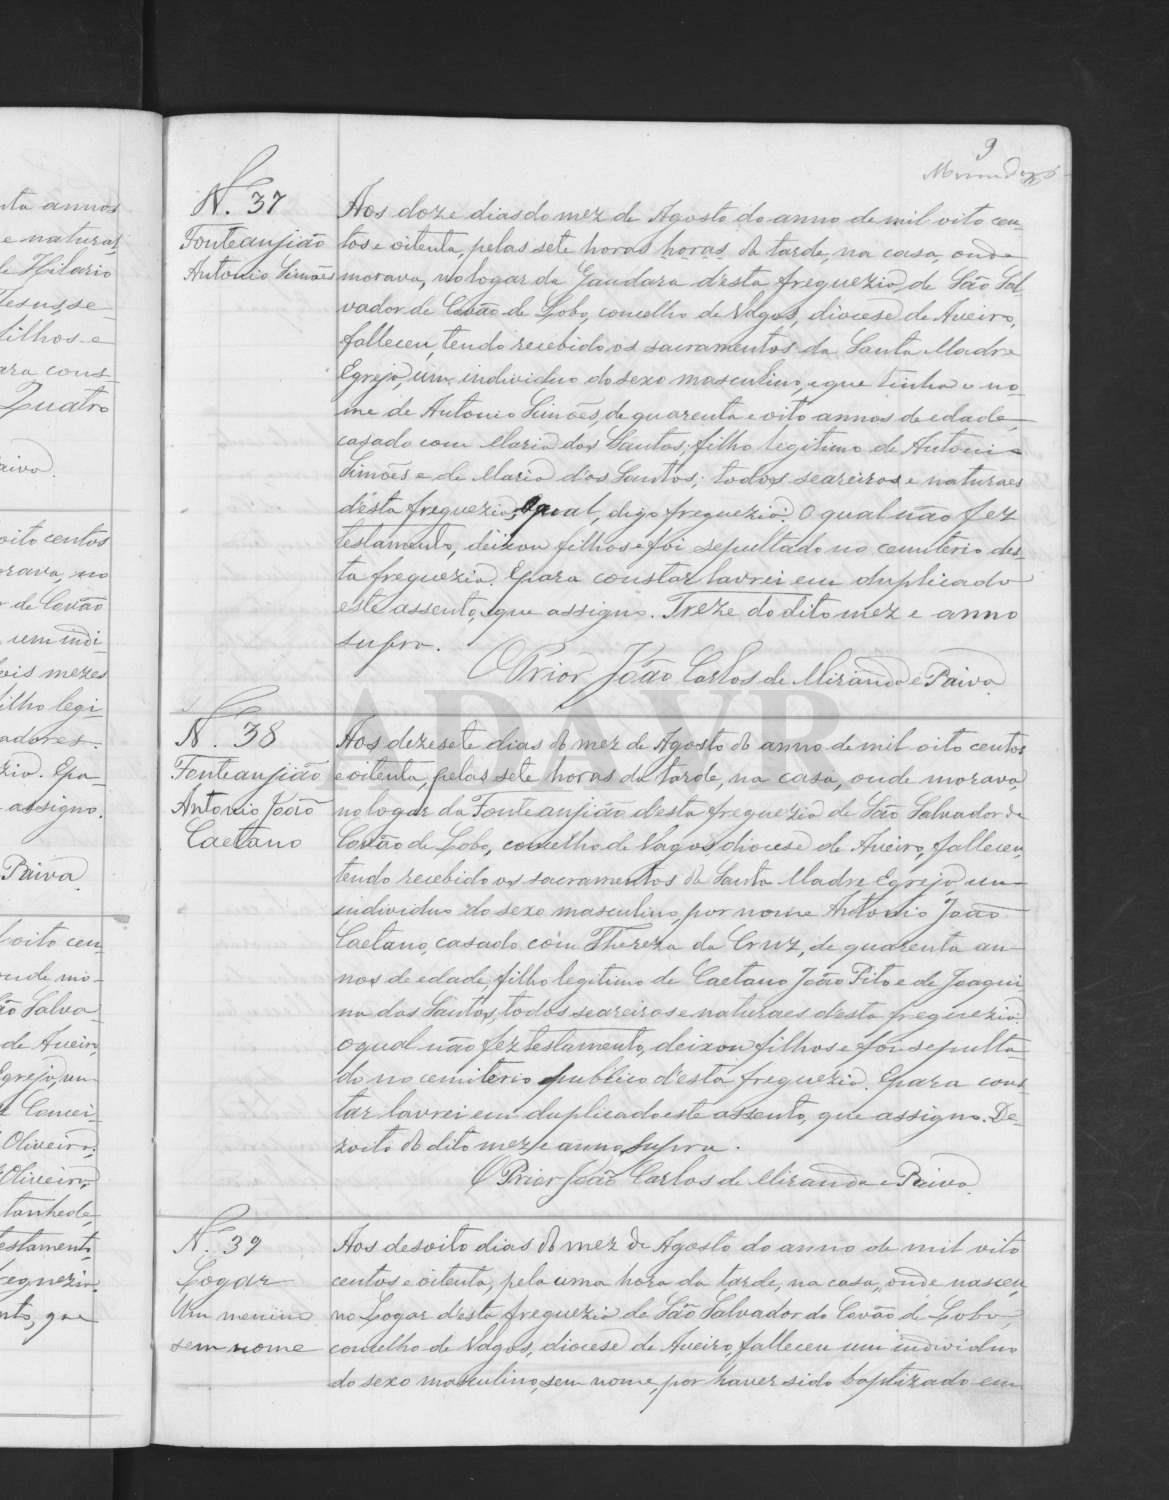 9
N.º 37
Fonteanjião
Antonio Simões
Aos doze dias do mez de Agosto do anno de mil oito cen-
tos e oitenta, pelas sete horas horas da tarde, na casa, onde
morava, no logar da Gandara d'esta freguezia de São Sal-
vador de Covão de Lobo, concelho de Vagos, diocese de Aveiro,
falleceu, tendo recebido os sacramentos da Santa Madre
Egreja, um individuo do sexo masculino, que tinha o no-
me de Antonio Simões, de quarenta e oito annos de edade,
casado com Maria dos Santos, filho legitimo de Antonio
Simões e de Maria dos Santos; todos seareiros e naturaes
d'esta freguezia, oqual, digo freguezia. O qual não fez
testamento, deixou filhos e foi sepultado no cemiterio des-
ta freguezia. E para constar lavrei em duplicado
este assento, que assigno. Treze do dito mez e anno
supra.
O Prior João Carlos de Miranda e Paiva
N.º 38
Fonteanjião
Antonio João
Caetano
Aos dezesete dias do mez de Agosto do anno de mil oito centos
e oitenta, pelas sete horas da tarde, na casa, onde morava,
no logar da Fonteanjião d'esta freguezia de São Salvador de
Covão de Lobo, concelho de Vagos, diocese de Aveiro, falleceu,
tendo recebido os sacramentos da Santa Madre Egreja, um
individuo do sexo masculino, por nome Antonio João
Caetano, casado com Thereza da Cruz, de quarenta an-
nos de edade, filho legitimo de Caetano João Pito e de Joaqui-
na dos Santos, todos seareiros e naturaes d'esta freguezia.
O qual não fez testamento, deixou filhos e foi sepulta-
do no cemiterio publico d'esta freguezia. E para cons-
tar lavrei em duplicado este assento, que assigno. De-
zoito do dito mez e anno supra.
O Prior João Carlos de Miranda e Paiva
N.º 39
Logar
Um menino
sem nome
Aos desoito dias do mez de Agosto do anno de mil oito
centos e oitenta, pela uma hora da tarde, na casa, onde nasceu,
no Logar d'esta freguezia de São Salvador do Covão de Lobo,
concelho de Vagos, diocese de Aveiro, falleceu um individuo
do sexo masculino, sem nome, por haver sido baptizado em
ADAVR